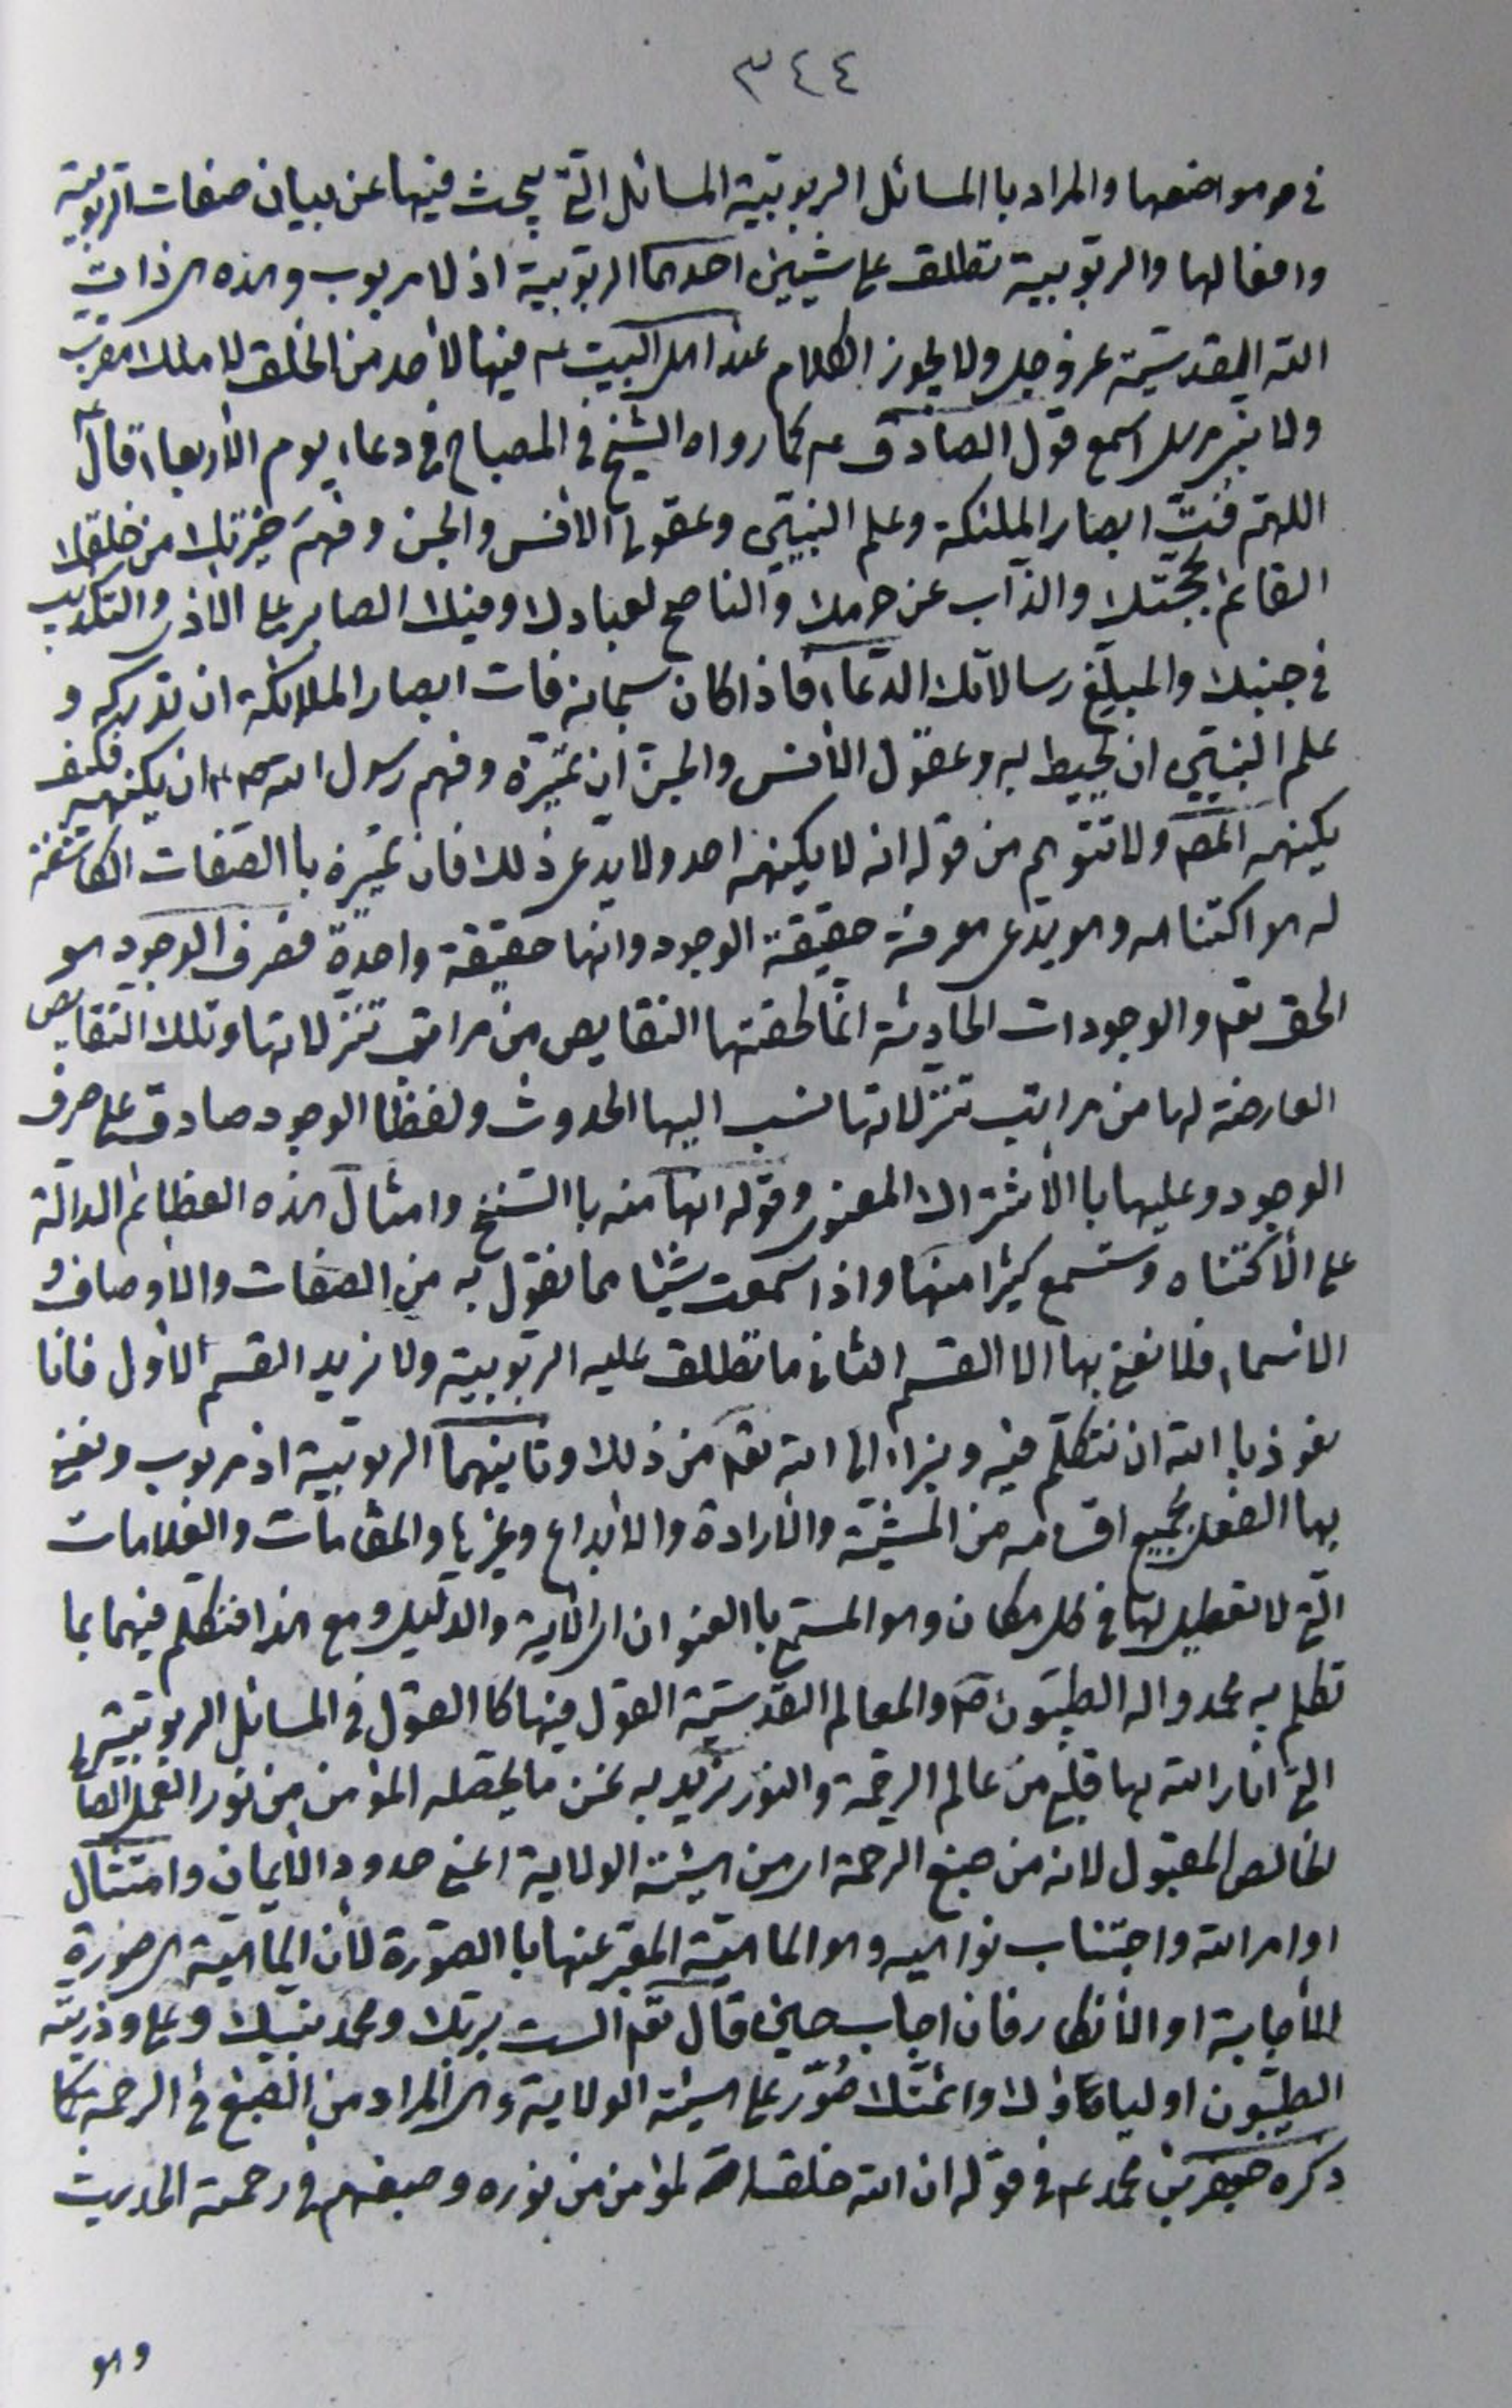 ٣٤٤
في مواضعها والمراد باالمسائل الربوبية المسائل التي يبحث فيها عن بيان صفات الربوبية
وافعالها والربوبية تطلق على شيئين احدهما الربوبية اذ لا مربوب وهذه هي الذات
الله المقدسة عز وجل ولا يجوز الكلام عند اهل البيت ع فيها لأحد من الخلق لا ملك مقرب
ولا نبي مرسل اسمع قول الصادق ع كما رواه الشيخ في المصباح في دعاء يوم الأربعاء قال ع
اللهم فتّ ابصار الملئكة وعلم النبيّين وعقول الأنس والجن وفهم خيرتك من خلقك
القائم بحجّتك والذآب عن حرمك والناصح لعبادك وفيك الصابر على الأذى والتكذيب
في جنبك والمبلّغ رسالاتك الدعاء فاذا كان سبحانه فات ابصار الملائكة ان تدركه و
علم النبيّين ان يحيط به وعقول الأنس والجنّ ان تميّزه وفهم رسول الله ص ان يكتنهه فكيف
يكتنهه المص ولا تتوهم من قوله انه لا يكتنهه احد ولا يدعى ذلك فان تميّزه باالصفات الكاشفة
له هو اكتناهه وهو يدّعى معرفة حقيقة الوجود وانها حقيقة واحدة فصرف الوجود هو
الحق تعم والوجودات الحادثة انّما لحقتها النقايص من مراتب تنزلاتها وتلك النقايص
العارضة لها من مراتب تنزلاتها نسب اليها الحدوث ولفظ الوجود صادق على صرف
الوجود وعليها باالأشتراك المعنوى وقوله انها منه باالسّنخ وامثال هذه العظائم الدالة
على الأكتناه وستسمع كثيرا منها واذا سمعت شيئا مما نقول به من الصفات والأوصاف و
الاسماء فلا نعني بها الا القسم الثاني ما تطلق عليه الربوبية ولا نريد القسم الأول فانا
نعوذ باالله ان نتكلّم فيه ونبرأ الى الله تعم من ذلك وثانيهما الربوبية اذ مربوب ونعني
بها الفعل بجميع اقسامه من المشيّة والأرادة والأبداع وغيرها والمقامات والعلامات
التي لا تعطيل لها في كل مكان وهو المسمى باالعنوان اى الآية والدليل ومع هذا فنتكلم فيهما بما
تكلم به محمد واله الطيّبون ص والمعالم القدسيّة القول فيها كاالقول في المسائل الربوبيّة
التي انار الله بها قلبي من عالم الرحمة والنور نريد به نحن ما يحصله المؤمن من نور العمل الصا
لخالص المقبول لانه من صبغ الرحمة اى من هيئة الولاية اعني حدود الأيمان وامتثال
اوامر الله واجتناب نواهيه وهو الماهيّة المعبّر عنها باالصّورة لأن الماهية هي صورة
الأجابة او الأنكار فان اجاب حين قال تعم ألست بربّك ومحمد نبيّك وعلى وذريته
الطيّبون اولياؤك وائمّتك صُوّر على هيئة الولاية وهى المراد من الصبغ في الرحمة كما
ذكره جعفر بن محمد ع في قوله ان الله خلق المؤمن من نوره وصبغهم في رحمته الحديث
وهو